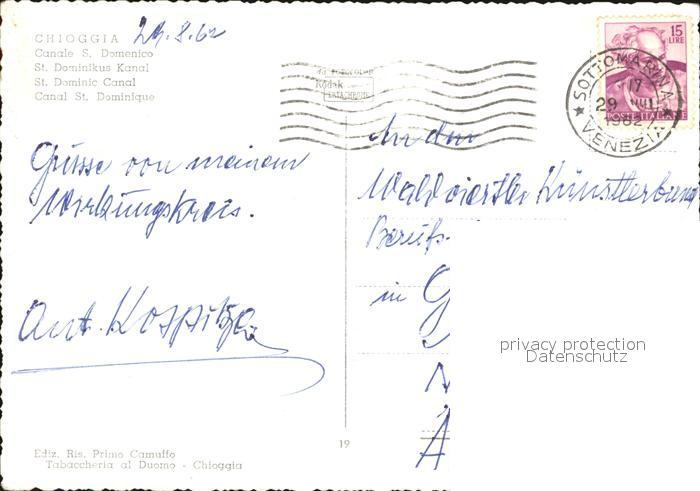 CHIOGGIA 29.8.62
Canale S. Domenico
St. Dominikus Kanal
St. Dominic Canal
Canal St. Dominique
Grüsse von meinem
Wirkungskreis.
Ant. Kospitza
Ediz. Ris. Primo Camuffo
Tabaccheria al Duomo - Chioggia
19
da fotocolor
Kodak
EKTACHROME
15
LIRE
POSTE ITALIANE
SOTTOMARINA
17
29 VIII
1962
VENEZIA
An den
Waldviertler Künstlerbund
Berufs-
in G
A
privacy protection
Datenschutz